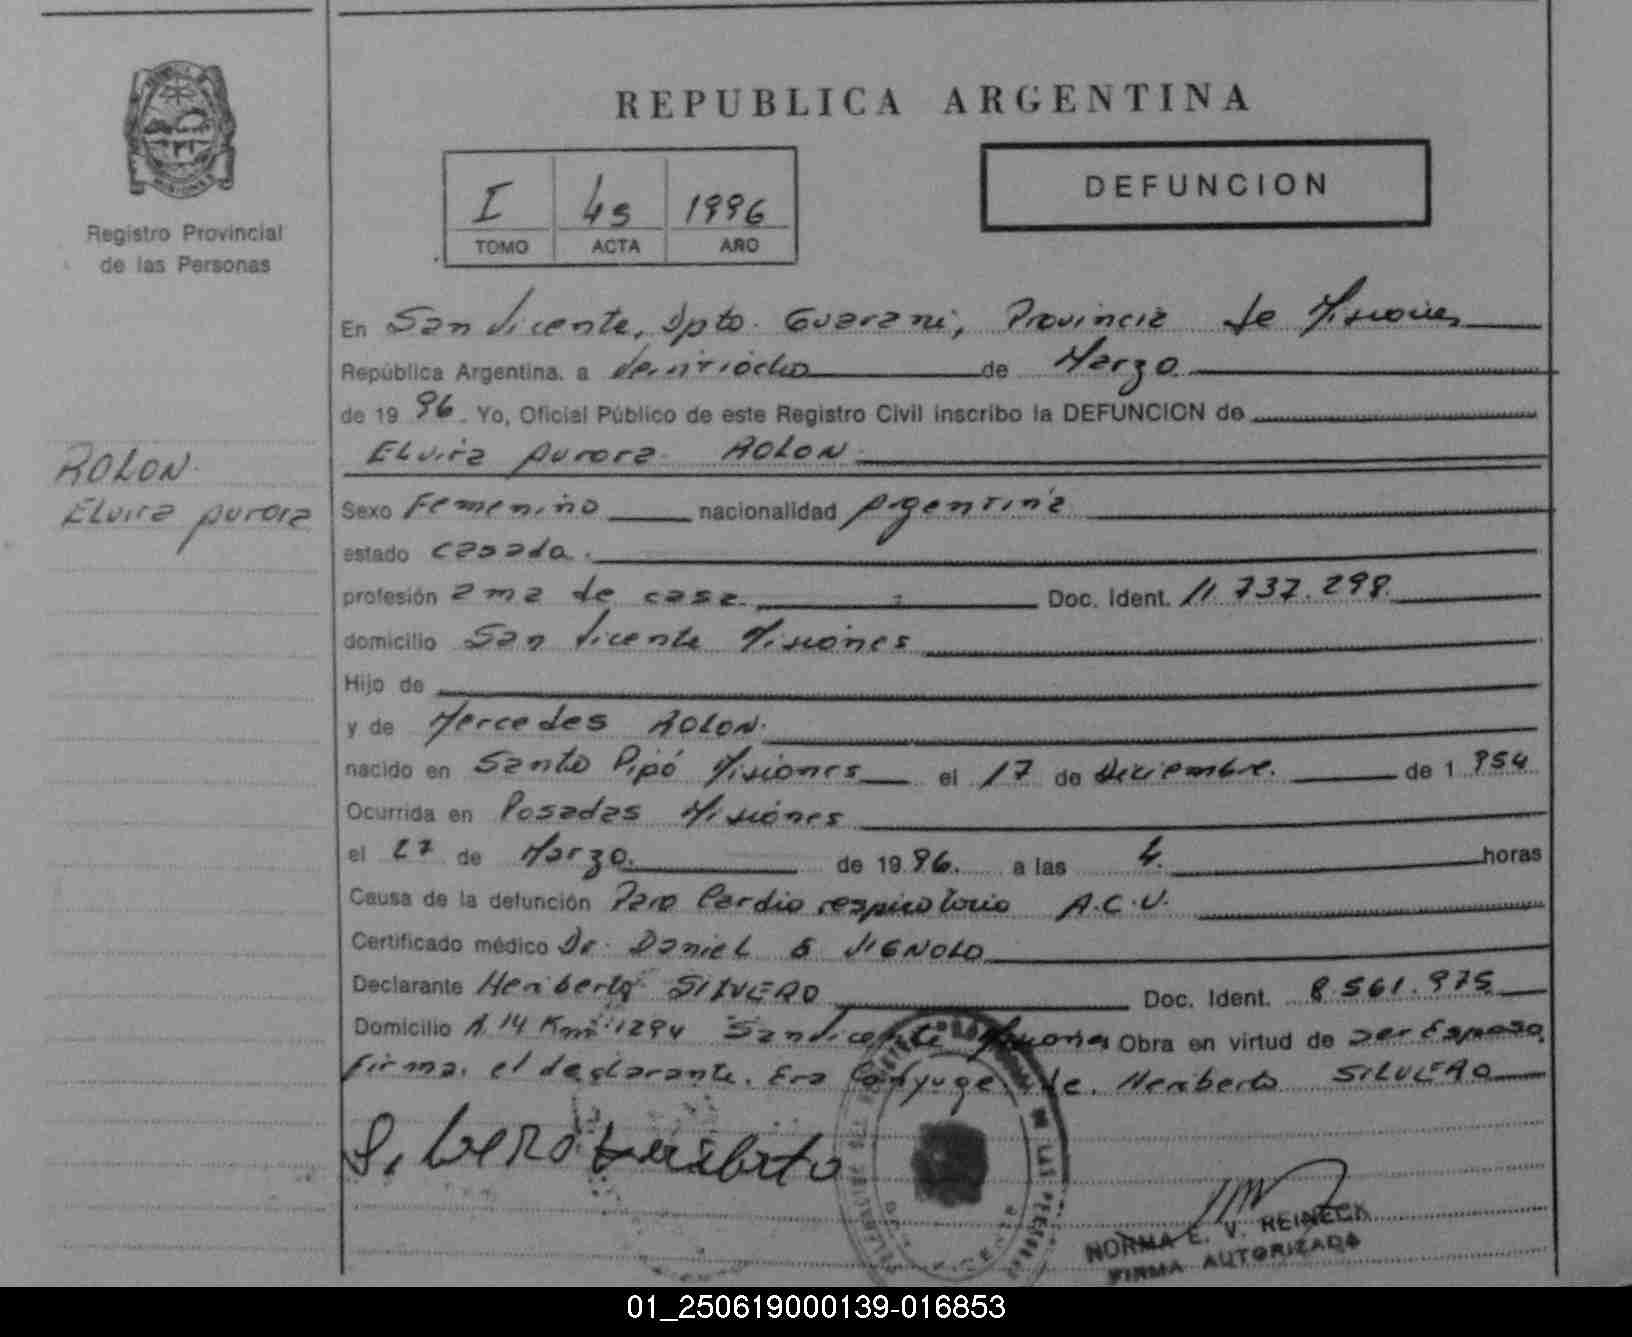 REPUBLICA ARGENTINA
DEFUNCION
I 45 1996
TOMO ACTA AÑO
Registro Provincial
de las Personas
En San Vicente, Dpto. Guarani, Provincia de Misiones
República Argentina, a Veintiocho de Marzo
de 19 96. Yo, Oficial Público de este Registro Civil inscribo la DEFUNCION de
Elvira Aurora ROLON
ROLON.
Elvira Aurora
Sexo Femenino nacionalidad Argentina
estado casada.
profesión ama de casa. Doc. Ident. 11.737.298.
domicilio San Vicente Misiones
Hijo de
y de Mercedes ROLON.
nacido en Santo Pipó Misiones el 17 de Diciembre. de 1 954
Ocurrida en Posadas Misiones
el 27 de Marzo. de 19 96. a las 4. horas
Causa de la defunción Paro Cardio respiratorio A.C.V.
Certificado médico Dr. Daniel VIGNOLO
Declarante Heriberto SILVERO Doc. Ident. 8.561.975
Domicilio 14 Km: 1294 San Vicente Misiones Obra en virtud de ser Esposo.
Firma. el declarante. Era Conyuge. de. Heriberto SILVERO
Silvero Heriberto
NORMA E. V. REINECK
FIRMA AUTORIZADA
01_250619000139-016853